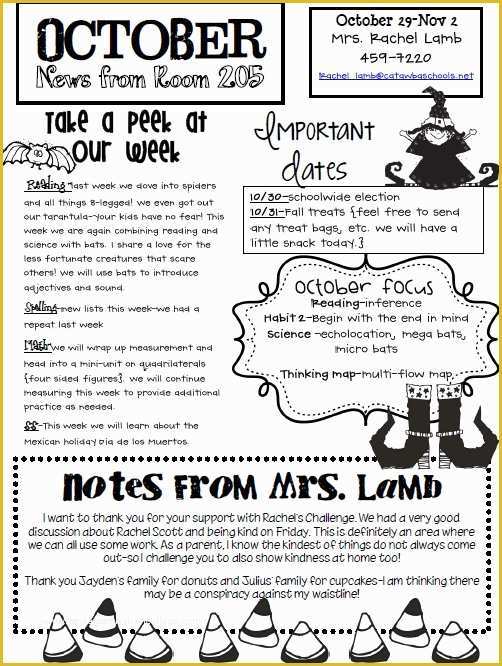 OCTOBER
News from Room 205
October 29-Nov 2
Mrs. Rachel Lamb
459-7220
Rachel_lamb@catawbaschools.net
Take a peek at
our week
Important
dates
Reading-last week we dove into spiders
and all things 8-legged! we even got out
our tarantula-your kids have no fear! This
week we are again combining reading and
science with bats. I share a love for the
less fortunate creatures that scare
others! We will use bats to introduce
adjectives and sound.
Spelling-new lists this week-we had a
repeat last week
Math-we will wrap up measurement and
head into a mini-unit on quadrilaterals
{four sided figures}. we will continue
measuring this week to provide additional
practice as needed.
SS-This week we will learn about the
Mexican holiday Dia de los Muertos.
10/30-schoolwide election
10/31-Fall treats {feel free to send
any treat bags, etc. we will have a
little snack today.}
October focus
Reading-inference
Habit 2-Begin with the end in mind
Science -echolocation, mega bats,
micro bats
Thinking map-multi-flow map
Notes from Mrs. Lamb
I want to thank you for your support with Rachel's Challenge. We had a very good
discussion about Rachel Scott and being kind on Friday. This is definitely an area where
we can all use some work. As a parent, I know the kindest of things do not always come
out-so I challenge you to also show kindness at home too!
Thank you Jayden's family for donuts and Julius' family for cupcakes-I am thinking there
may be a conspiracy against my waistline!